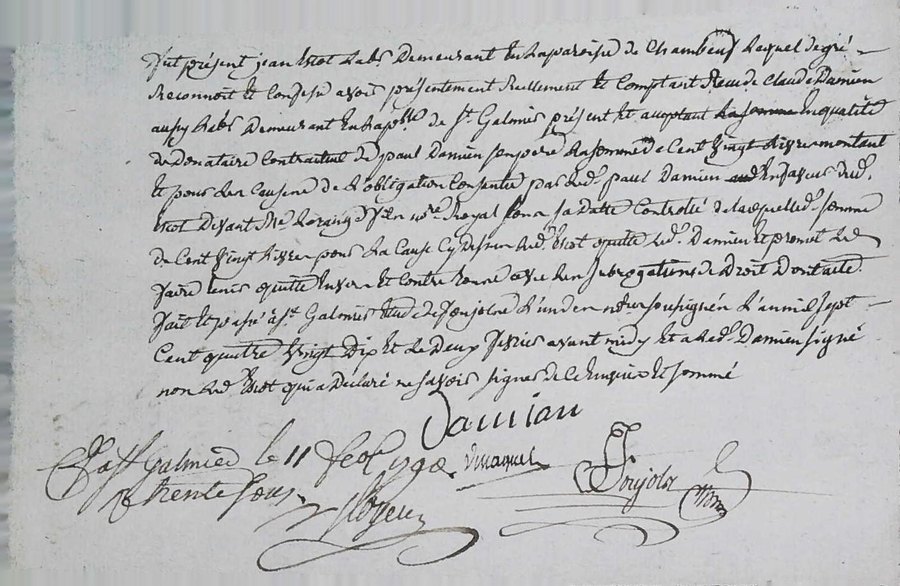 fut présent jean Viot Labr demeurant En La paroisse de Chambeuf Lequel de gré
Reconnoit Et Confesse avoir présentement Reellement Et Comptant Receu de Claude Damien
aussy Labr Demeurant En La psse de St Galmier présent Et acceptant En qualité
de Donataire Contractuel de paul Damien son pere La somme de Cent Vingt Livres montant
Et pour Les Causes de L'obligation Consentie par Led. paul Damien En faveur dud.
Viot Devant Me nore Royal sous sa Datte Controllé de Laquelle d. somme
de Cent Vingt Livres pour La Cause Cy Dessus Led. Viot quitte Led. Damien Et promet Le
faire tenir quitte Envers Et Contre tous avec Les subrogations de Droit
fait Et passé à St Galmier Etude de Poujolx L'un des nores soussignés L'an mil sept
Cent quatre Vingt Dix Et Le Deux fevrier avant midy Et a Led. Damien signé
non Led. Viot qui a Declaré ne savoir signer de ce Enquis Et sommé
Damian
a St Galmier le 11 feb 1790
trente sous
Poujolx